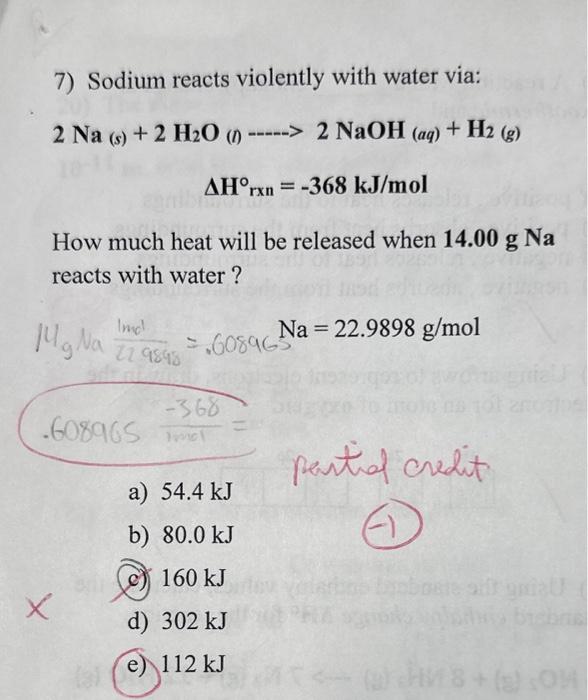 7) Sodium reacts violently with water via:
2 Na (s) + 2 H2O (l) -----> 2 NaOH (aq) + H2 (g)
ΔH°rxn = -368 kJ/mol
How much heat will be released when 14.00 g Na
reacts with water ?
Na = 22.9898 g/mol
14g Na 1mol / 22.9898 = .608965
.608965 -368 / 1mol =
partial credit
-1
a) 54.4 kJ
b) 80.0 kJ
c) 160 kJ
X
d) 302 kJ
e) 112 kJ